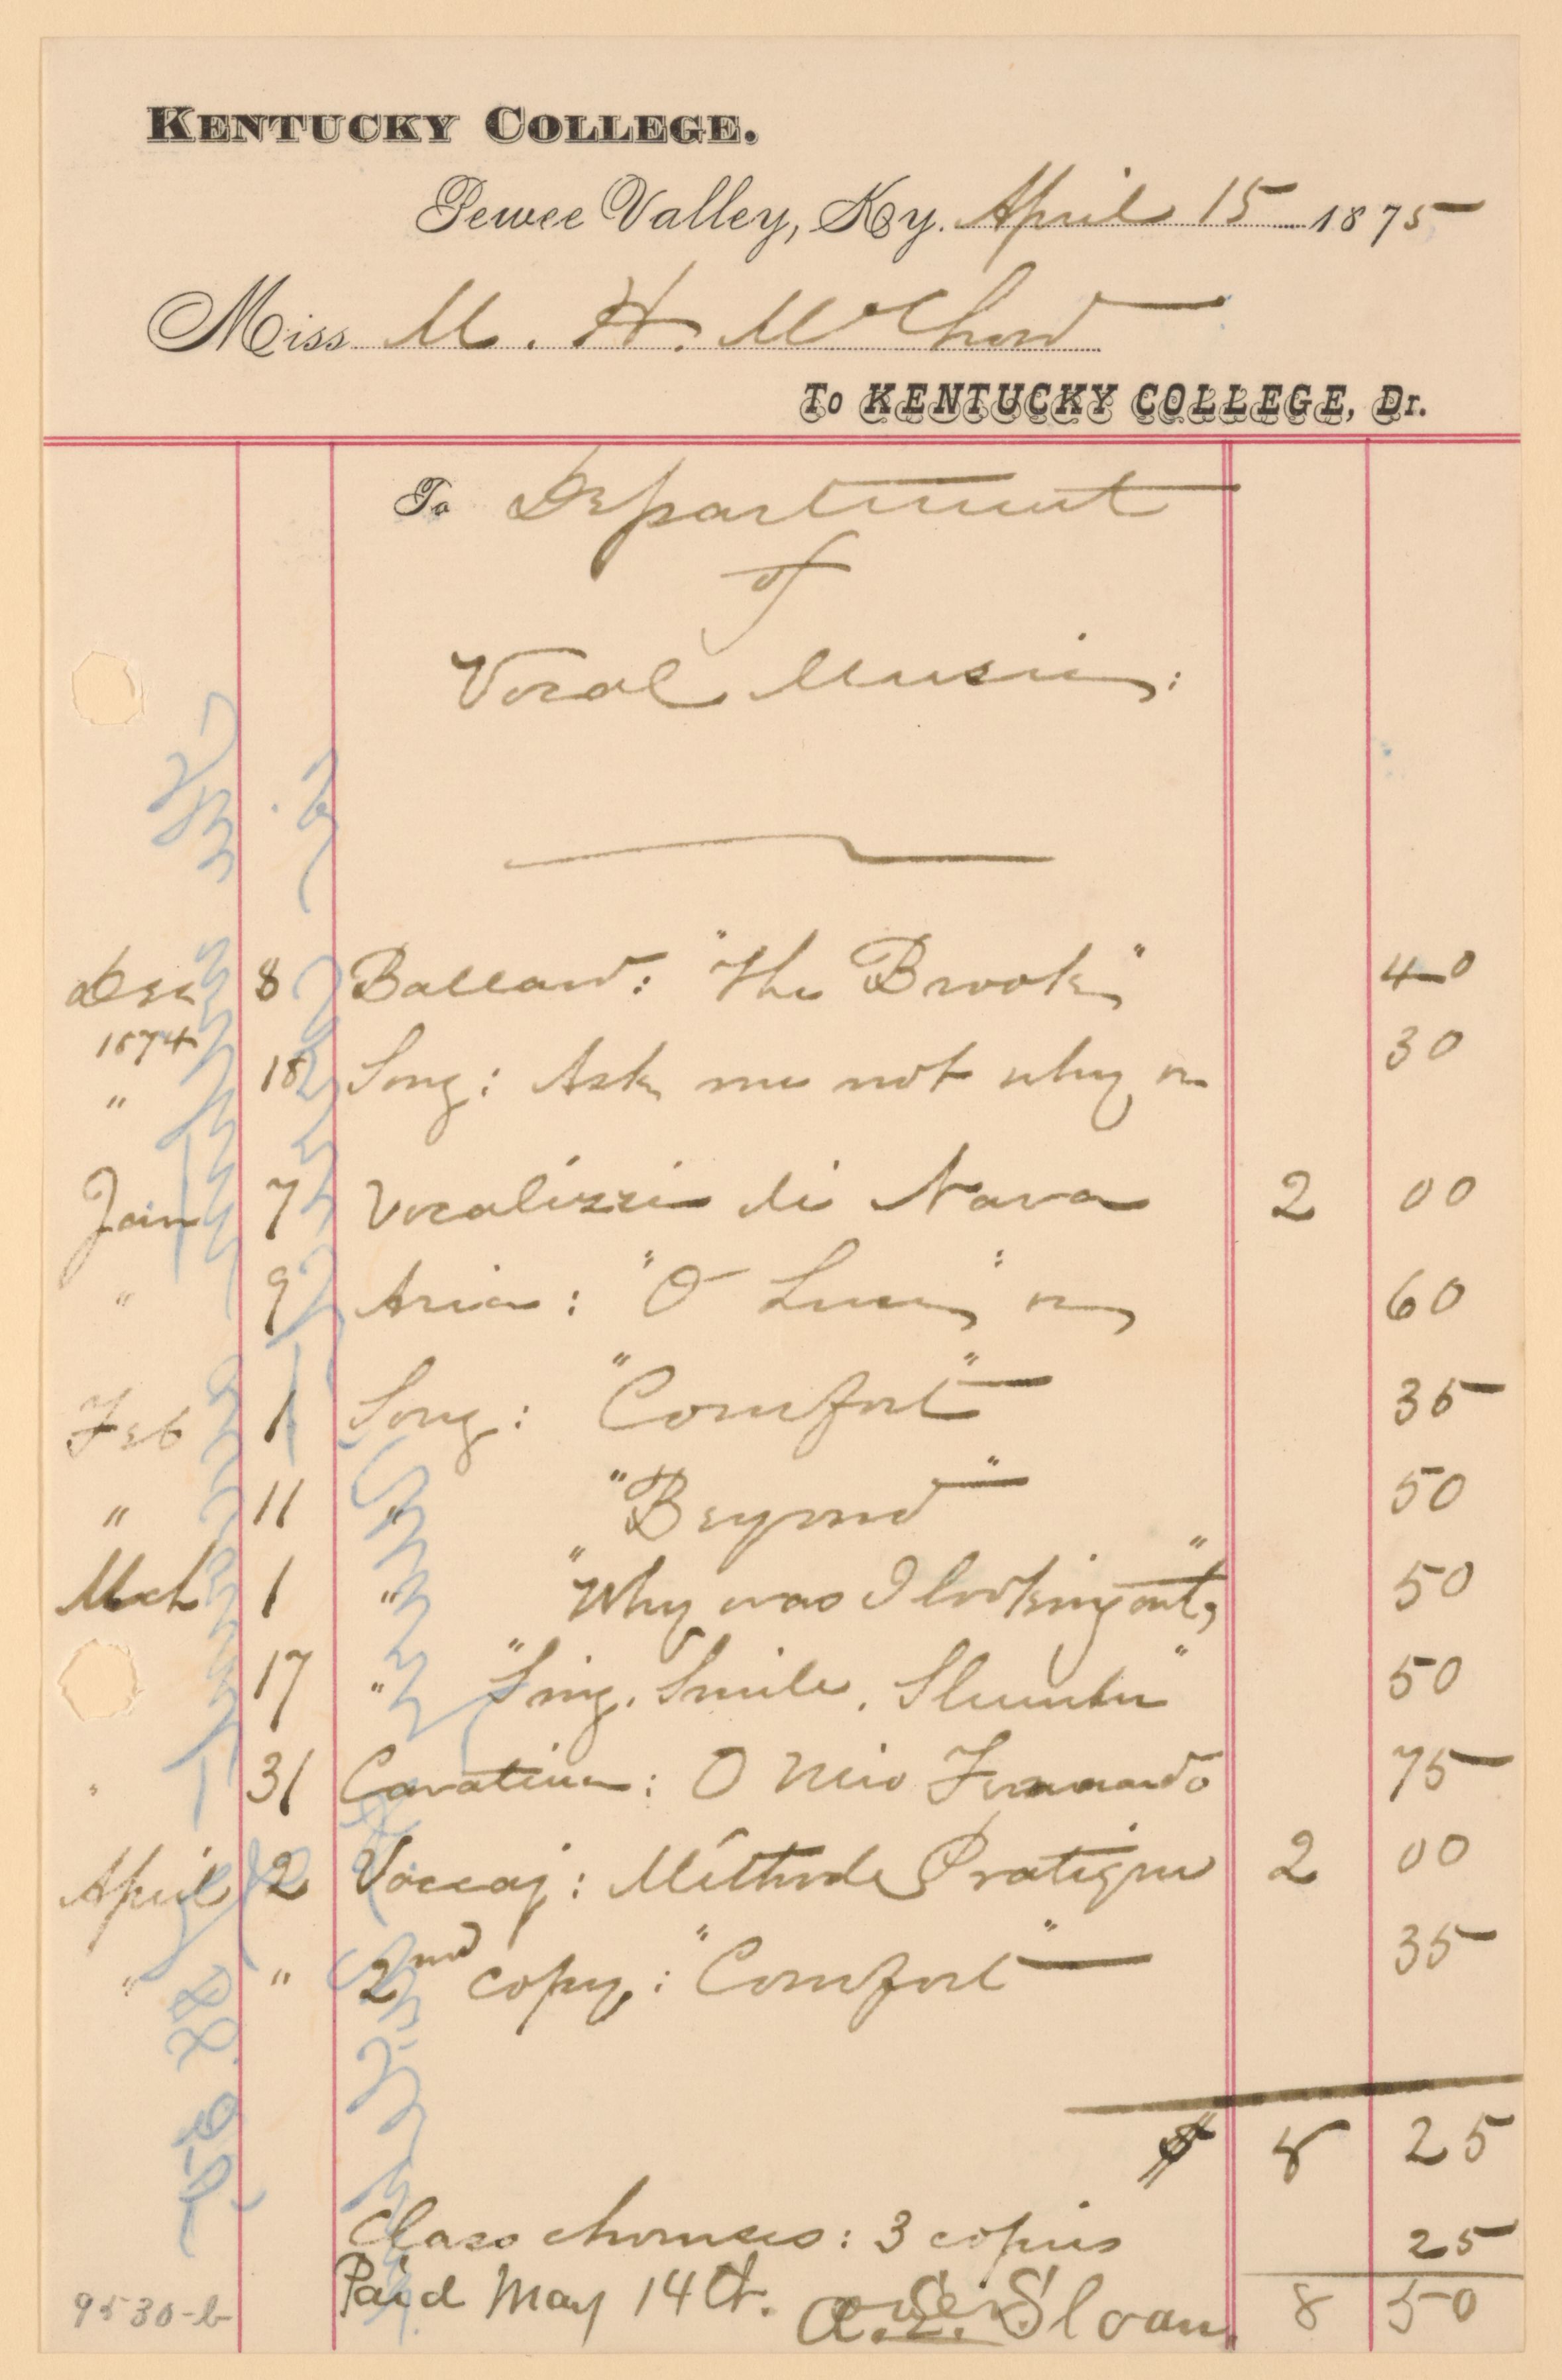 KENTUCKY COLLEGE.
Pewee Valley, Ky. April 15 1875
Miss M. H. McChord
To KENTUCKY COLLEGE, Dr.
To Department
of
Vocal Music:
Dec 8 Ballad: "The Brook" 40
1874
" 18 Song: Ask me not why 30
Jan 7 Vocalizzi di Nava 2 00
" 9 Aria: "O Luce" 60
Feb 1 Song: "Comfort" 35
" 11 " "Beyond" 50
Mch 1 " "Why was I looking out" 50
17 " "Sing, Smile, Slumber" 50
" 31 Cavatina: O Mio Fernando 75
April 2 Vaccaj: Méthode Pratique 2 00
" " 2nd copy: "Comfort" 35
$ 8 25
Class choruses: 3 copies 25
Paid May 14th. A. E. Sloan. 8 50
9530-b